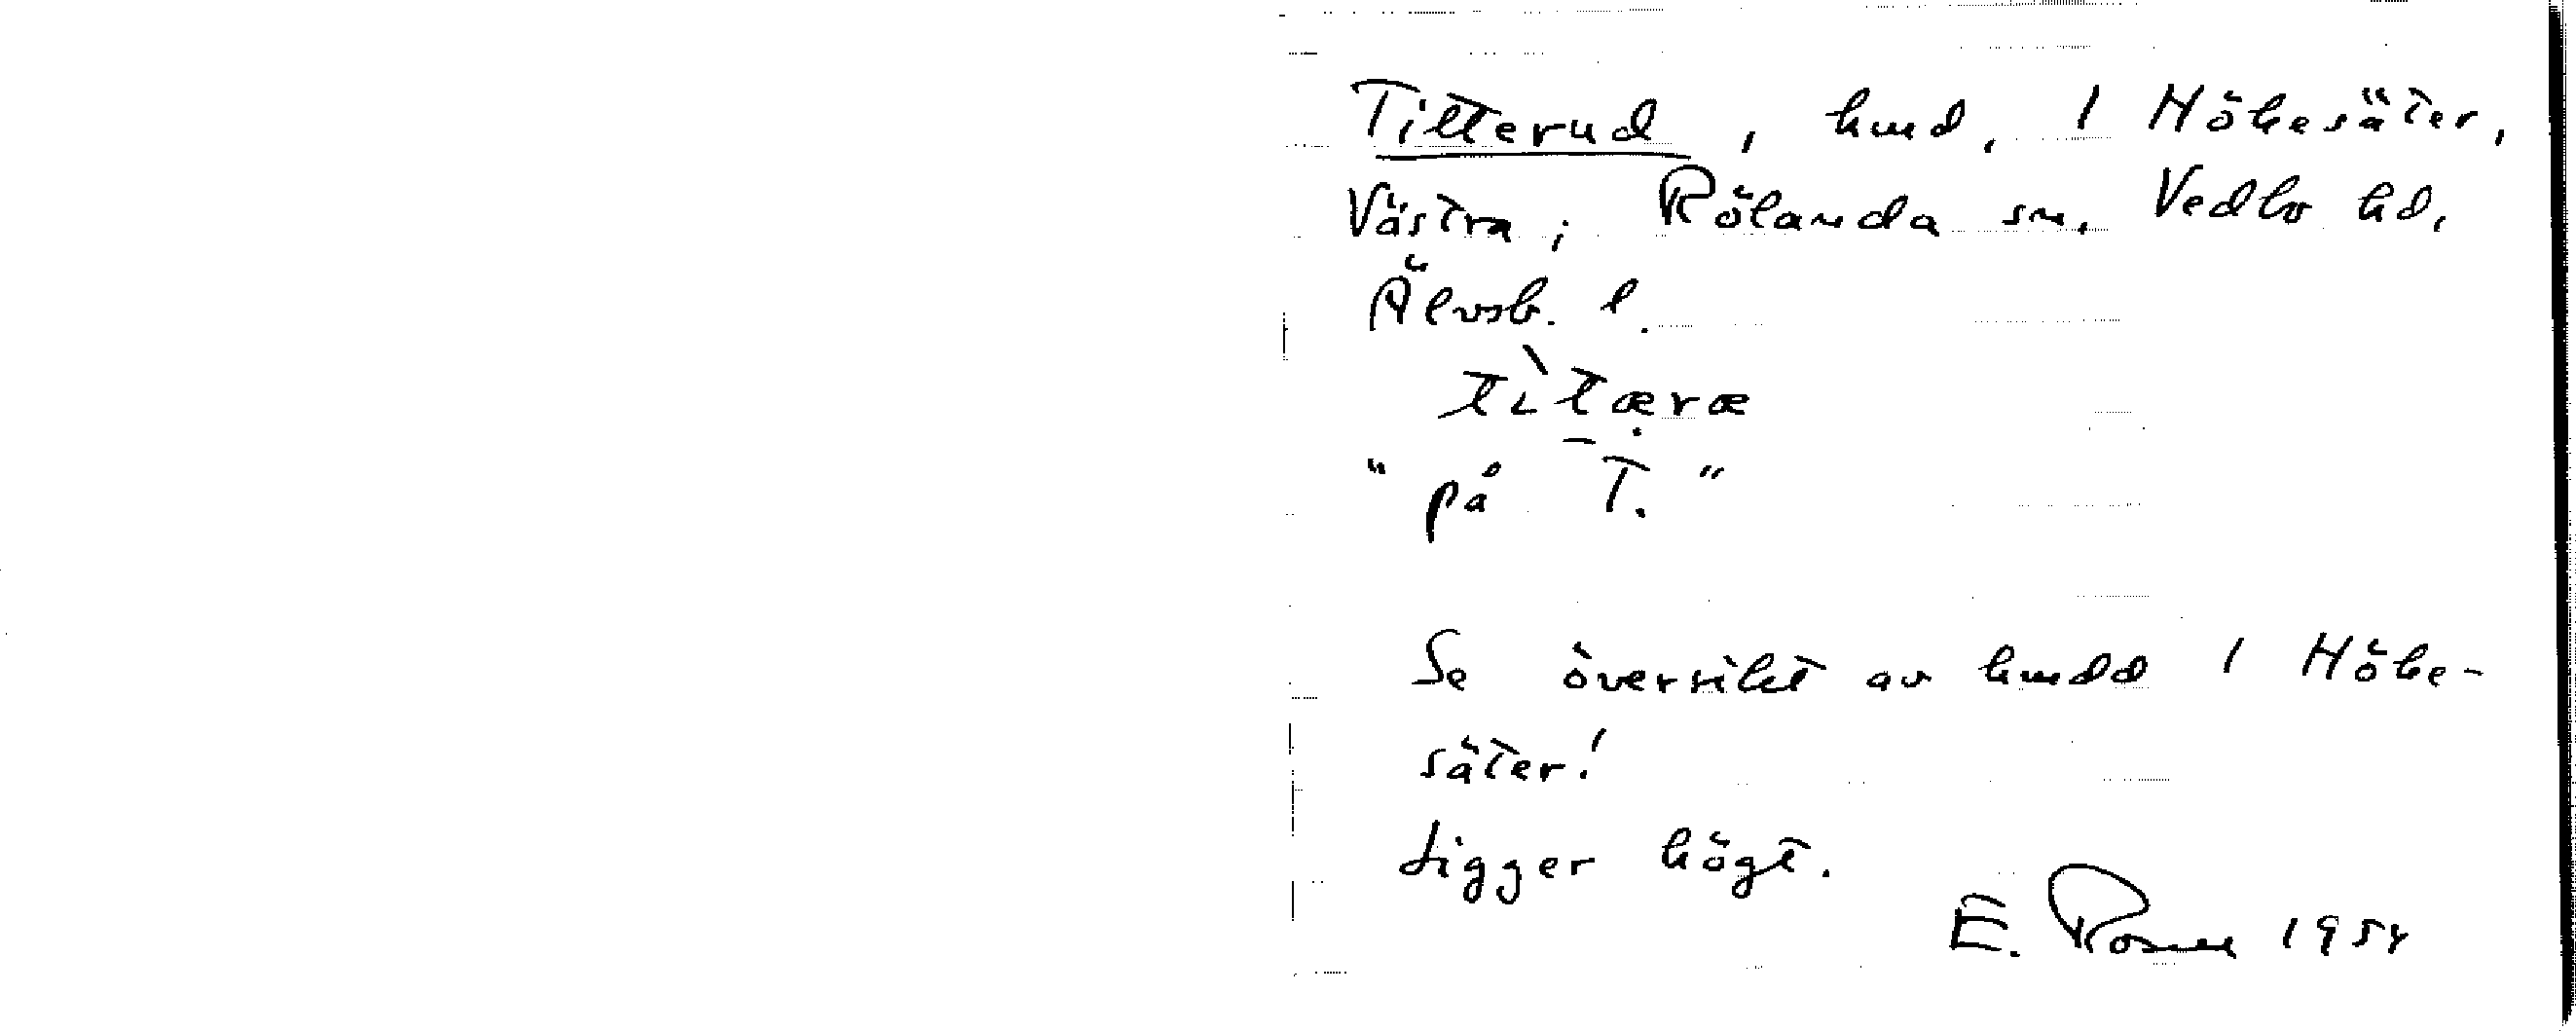 Titterud, hmd. 1 Hökesäter,
Västra; Rölanda sn. Vedbo hd.
Älvsb. l.
tìtæræ
"på T."
Se översikt av hmdd 1 Höke-
säter!
Ligger högt.
E. Rosell 1954